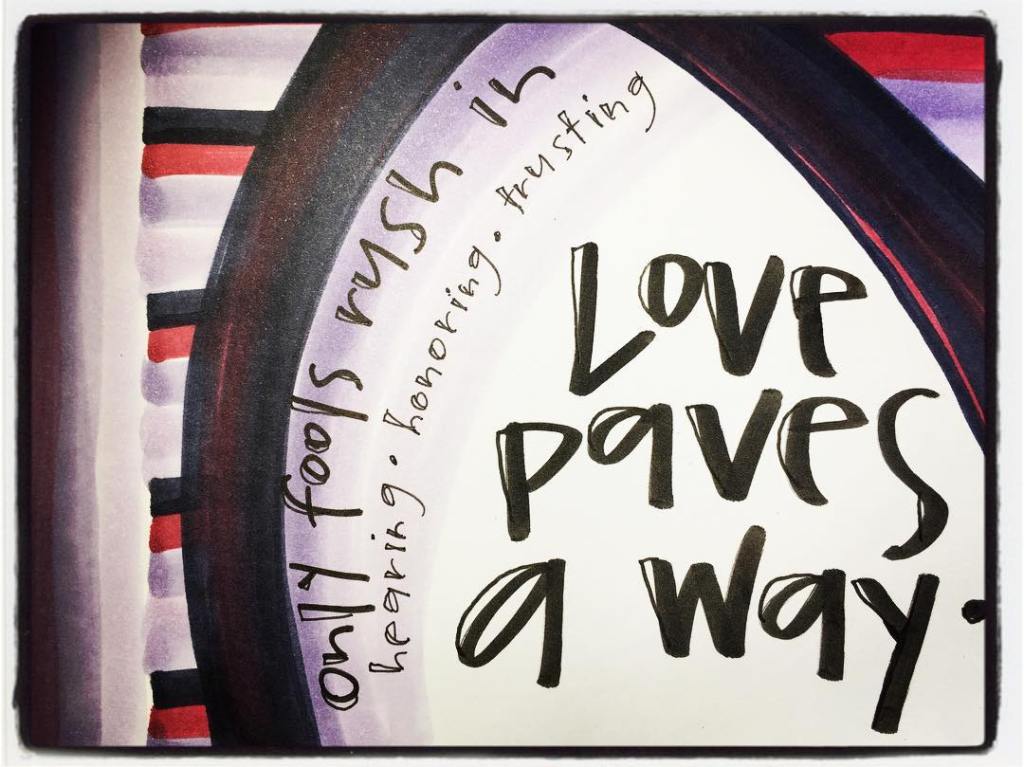 only fools rush in
hearing. honoring. trusting
Love
paves
a way.